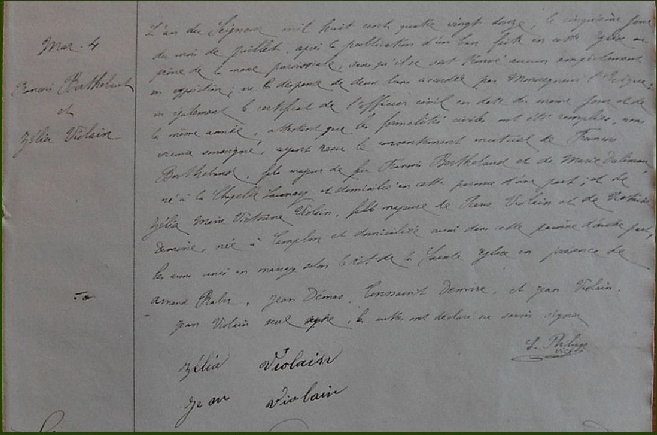 Mar. 4
François Barthelaud
et
Zélia Violain
L'an du Seigneur mil huit cent quatre vingt douze, le cinquième jour
du mois de juillet, après la publication d'un ban faite en cette église au
prône de la messe paroissiale, sans qu'il se soit trouvé aucun empêchement
ou opposition, vu la dispense de deux bans accordée par Monseigneur l'Evêque
vu également le certificat de l'officier civil en date du même jour et de
la même année, attestant que les formalités civiles ont été remplies, nous
soussigné, ayant reçu le consentement mutuel de François
Barthelaud, fils majeur de feu François Barthelaud et de Marie
né à la Chapelle Launay et domicilié en cette paroisse d'une part; et de
Zélia Marie Victoire Violain, fille majeure de Jean Violain et de
née à et domiciliée aussi dans cette paroisse d'autre part,
les avons unis en mariage selon le rit de la Sainte Eglise en présence de
Jean Toussaint et Jean Violain.
Jean Violain seul excepté, les autres ont déclaré ne savoir signer
Zélia Violain
Jean Violain